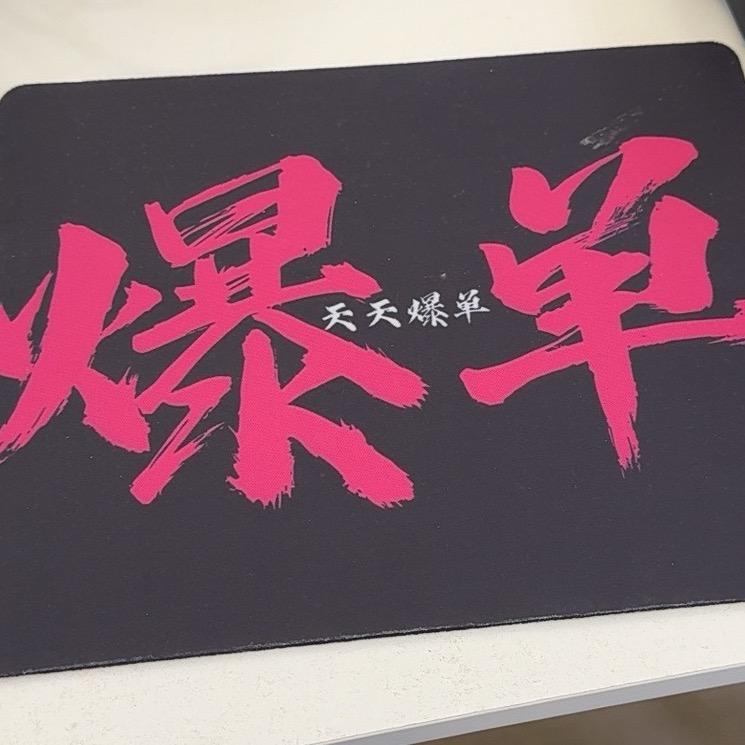 爆单
天天爆单